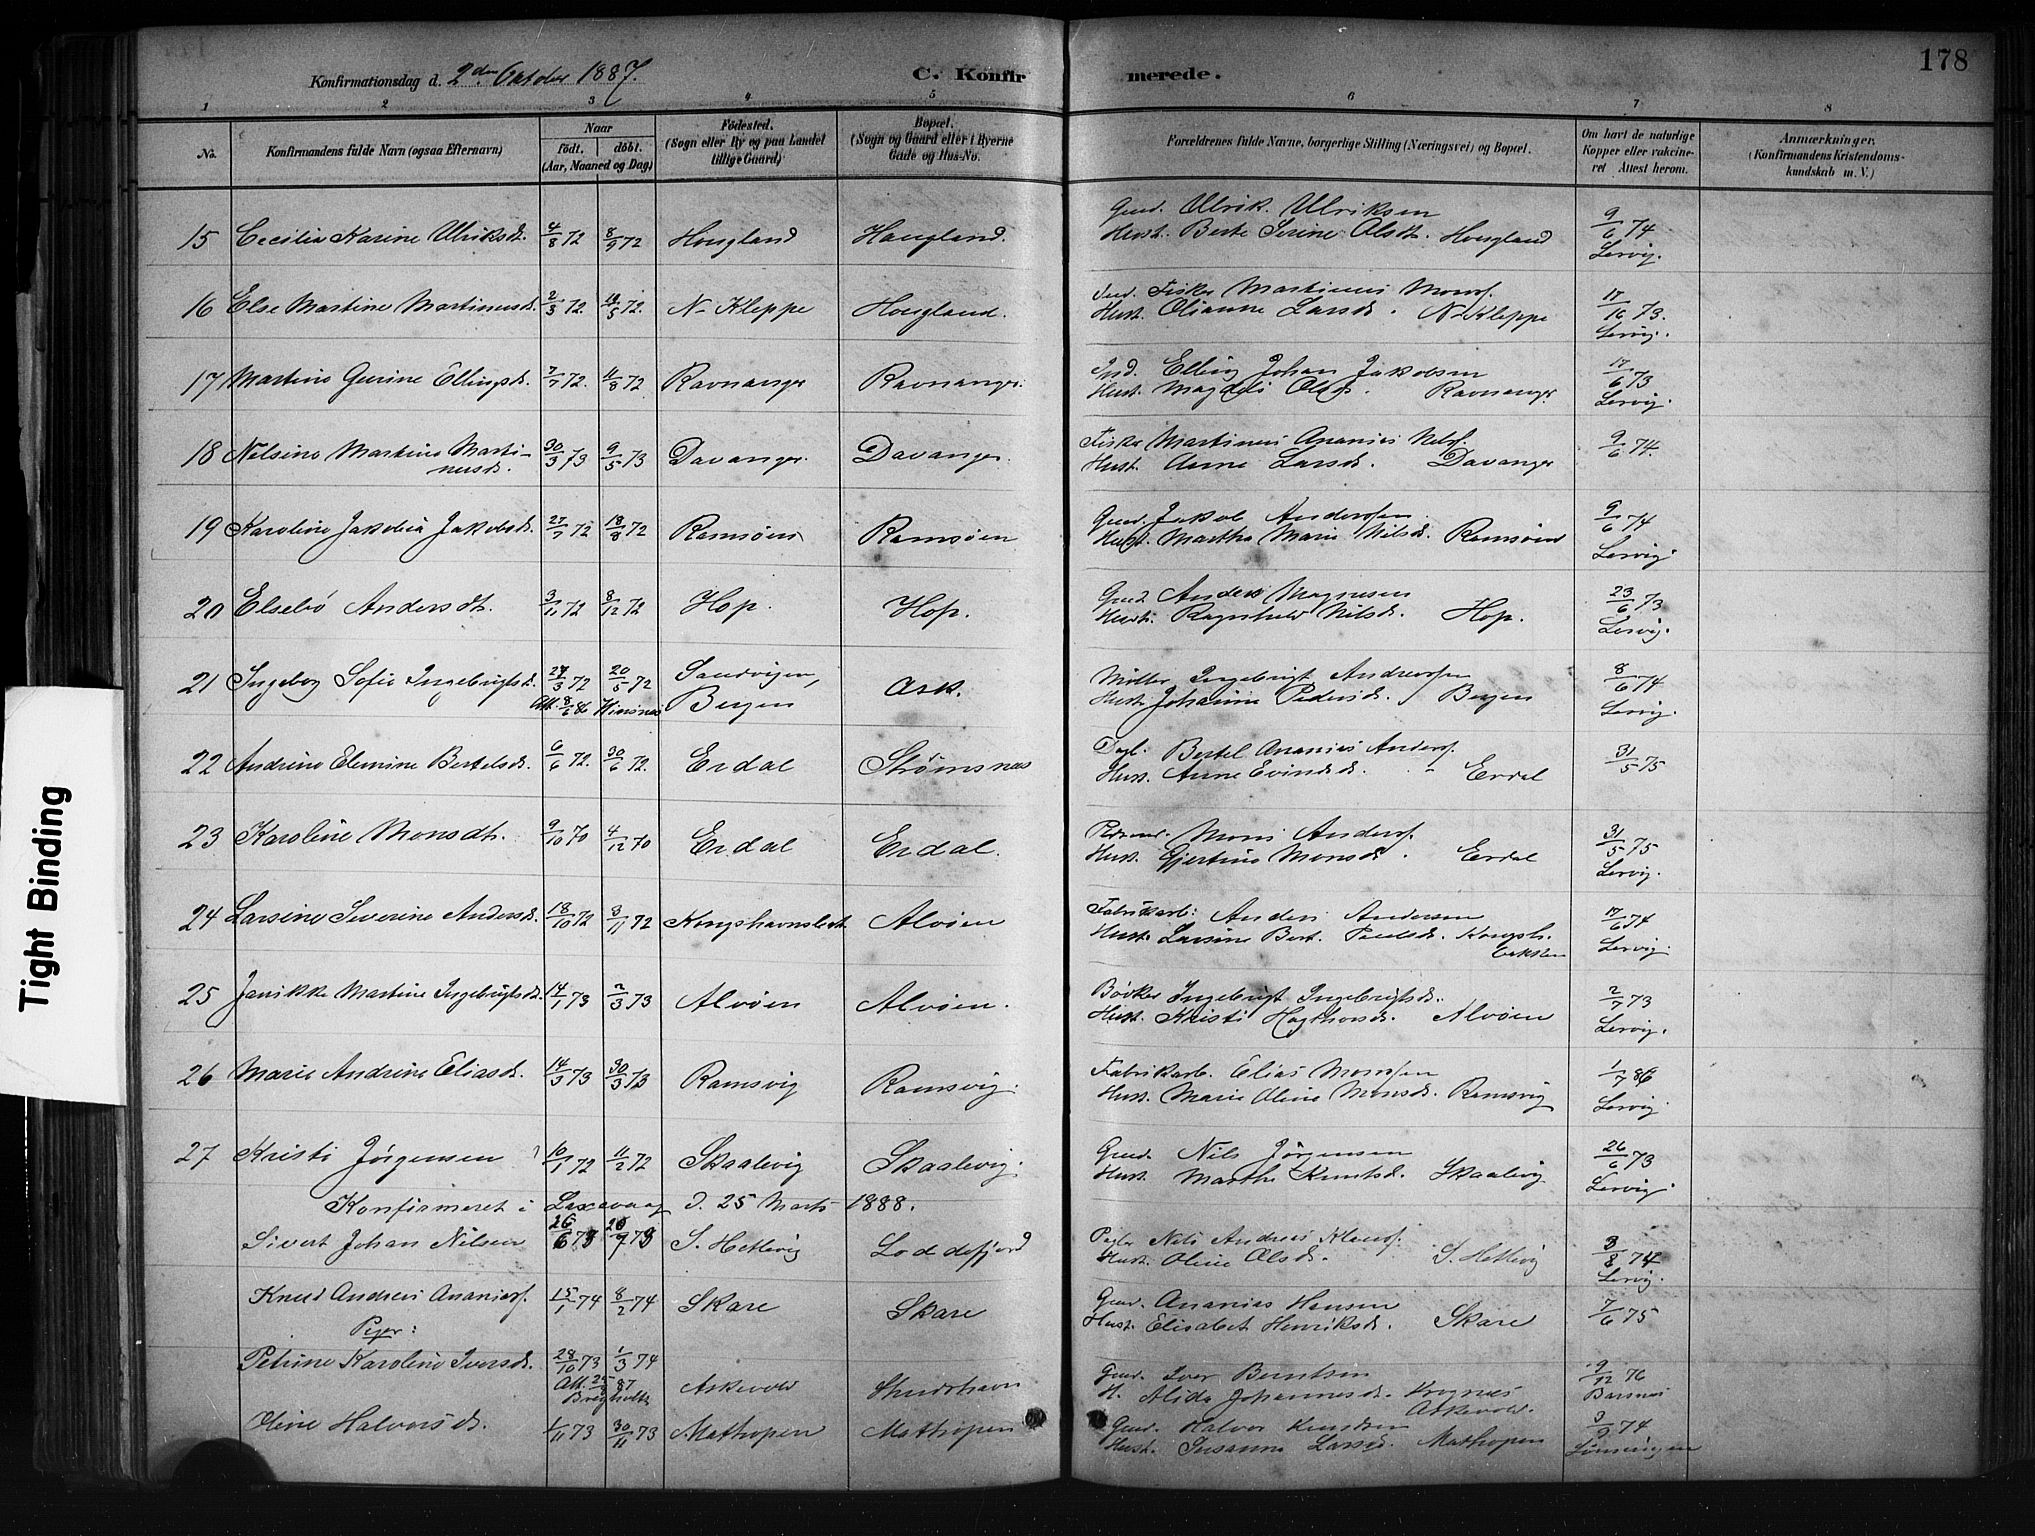 178
Konfirmationsdag d. 2den Oktober 1887.
C. Konfirmerede.
1 2 3 4 5 6 7 8
No. Konfirmandens fulde Navn (ogsaa Efternavn) Naar født. døbt. (Aar, Maaned og Dag) Fødested. (Sogn eller By og paa Landet tillige Gaard) Bopæl. (Sogn og Gaard eller i Byerne Gade og Hus-No. Forældrenes fulde Navne, borgerlige Stilling (Næringsvei) og Bopæl. Om havt de naturlige Kopper eller vakcineret Attest herom. Anmærkninger, (Konfirmandens Kristendomskundskab m. V.)
15 Cecilia Karine Ulriksdt. 4/8 72 8/9 72 Hougland Haugland. Gmd. Ulrik Ulriksen
Hust. Berte Serine Olsdt. Hougland 9/6 74 Lervig.
16 Else Martine Martinusd. 2/3 72. 12/5 72. N-Kleppe Hougland. Ind. Fisker Martinus Monsf.
Hust. Olianne Larsd. N-Kleppe 17/10 73. Lervig.
17 Martine Gurine Ellingsd. 7/7 72. 11/8 72 Ravnanger Ravnanger. Ind. Elling Johan Jakobsen
Hust. Magdli Olsd. Ravnanger. 17/6 73 Lervig.
18 Nilsine Martine Martinusd. 30/3 73 9/5 73 Davanger. Davanger. Fisker Martinus Ananias Nilsf.
Hust. Anne Larsd. Davanger 9/6 74.
19 Karoline Jakobia Jakobsd. 27/7 72 18/8 72 Ramsøen Ramsøen Gmd. Jakob Anderssen
Hust. Martha Marie Nilsd. Ramsøen 9/6 74 Lervig.
20 Elsebø Andersdt. 3/11 72 8/12 72 Hop. Hop. Gmd. Anders Magnesen
Hust. Ragnhild Nilsd. Hop. 23/6 73 Lervig.
21 Ingebog Sofie Ingebrigtsd. 27/3 72 20/5 72 Sandvigen, Ask. Møller Ingebrigt Andreassen 8/6 74
Att. 8/6 86 Bergen Hust. Johanne Pedersd. Bergen Lervig.
22 Andrine Elemine Bertelsd. 6/6 72. 30/6 72. Erdal Strømsnes Dagl. Bertel Ananias Andersf.
Hust. Anne Evindsd. Erdal 31/5 75
23 Karoline Monsdt. 9/10 70 4/12 70 Erdal Erdal. Mons Andersf.
Hust. Gjertine Monsd. Erdal 31/5 75 Lervig.
24 Larsine Severine Andersd. 18/10 72 3/11 72 Kongshavnsledt Alvøen Fabrikarb: Anders Andersen
Hust. Larsine Bert. Paulsd. Kongsh. 17/6 74 Lervig.
25 Janikke Martine Ingebrigtsd. 14/1 73 2/3 73 Alvøen Alvøen. Bødker Ingebrigt Ingebrigtsd.
Hust. Kristi Hagthorsd. Alvøen 2/7 73 Lervig.
26 Marie Andrine Eliasd. 14/3 73 30/3 73 Ramsvig Ramsvig. Fabrikarb. Elias Monssen
Hust. Marie Oline Monsd. Ramsvig 1/7 86 Lervig.
27 Kristi Jørgensen 10/1 72 11/2 72 Skaalevig Skaalevig. Gmd. Nils Jørgensen
Hust. Marthe Knutsd. Skaalevig 26/6 73 Lervig.
Konfirmeret i Laxevaag d. 25 Marts 1888.
Sivert Johan Nilsen 26/6 73 20/7 73 S. Hetlevig Loddefjord Nils Andreas
Hust. Oline Olsd. S. Hetlevig 3/8 74 Lervig.
Knud Andreas Ananiasf. 15/1 74 8/2 74 Skare Skare Gmd. Ananias Hansen
Hust. Elisabet Henriksd. Skare 7/6 75
Piger:
Petrine Karoline Iversd. 28/10 73 1/3 74 Askevold Skudshavn Gmd. Iver Berntsen 9/12 76
H. Alida Johannesd. Askevold.
Oline Halvorsd. 1/11 73 30/11 73 Mathopen Mathopen Gmd. Halvor Knudsen 3/9 74
Hust. Susanna Larsd. Mathopen
Tight Binding